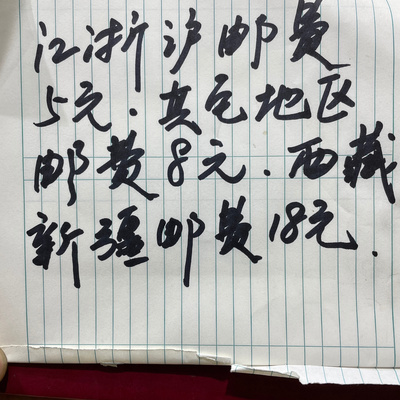 江浙沪邮费
5元.其它地区
邮费8元.西藏
新疆邮费18元.